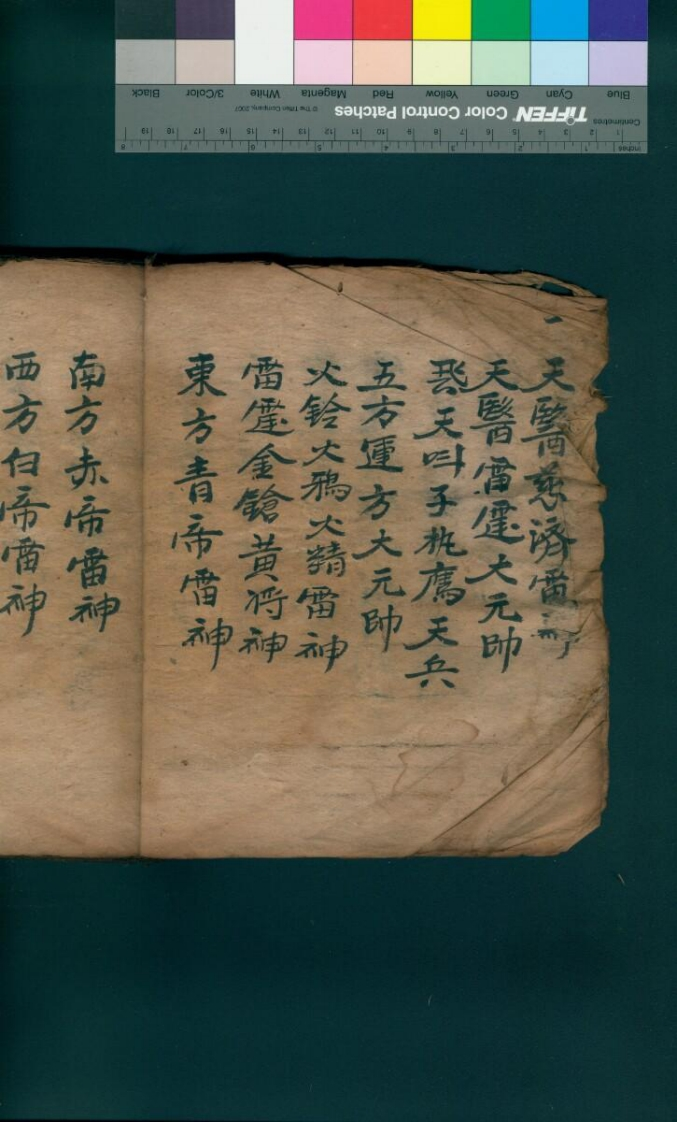 一
天醫慈濟雷神
天醫雷霆大元帥
飛天叫子執鷹天兵
五方運方大元帥
火鈴火鴉火精雷神
雷霆金鎗黃将神
東方青帝雷神
南方赤帝雷神
西方白帝雷神
Blue Cyan Green Yellow Red Magenta White 3/Color Black
TIFFEN Color Control Patches © The Tiffen Company, 2007
Centimetres 1 2 3 4 5 6 7 8 9 10 11 12 13 14 15 16 17 18 19
Inches 1 2 3 4 5 6 7 8